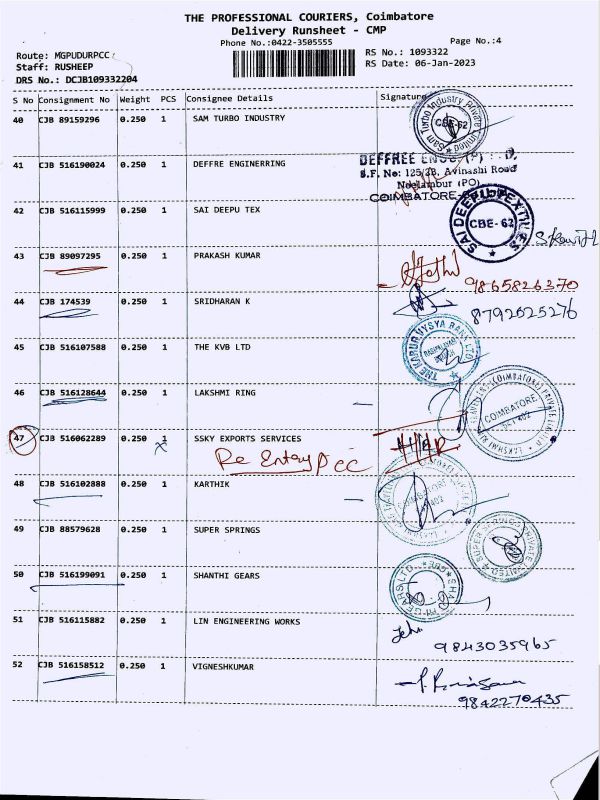 THE PROFESSIONAL COURIERS, Coimbatore
Delivery Runsheet - CMP
Phone No.:0422-3505555 Page No.:4
Route: MGPUDURPCC RS No.: 1093322
Staff: RUSHEEP RS Date: 06-Jan-2023
DRS No.: DCJB109332204
S No Consignment No Weight PCS Consignee Details Signature
40 CJB 89159296 0.250 1 SAM TURBO INDUSTRY
Sam Turbo Industry Private Limited
CBE-62
41 CJB 516190024 0.250 1 DEFFRE ENGINERRING
DEFFREE
S.F. No: 125/2B, Avinashi Road
Neelambur (PO)
COIMBATORE
42 CJB 516115999 0.250 1 SAI DEEPU TEX
SAI DEEPU TEXTILES
CBE- 62
43 CJB 89097295 0.250 1 PRAKASH KUMAR
9865826370
44 CJB 174539 0.250 1 SRIDHARAN K
8792625276
45 CJB 516107588 0.250 1 THE KVB LTD
THE KARUR VYSYA BANK LTD
46 CJB 516128644 0.250 1 LAKSHMI RING
COIMBATORE
47 CJB 516062289 0.250 1 SSKY EXPORTS SERVICES
Re Entry PCC
48 CJB 516102888 0.250 1 KARTHIK
49 CJB 88579628 0.250 1 SUPER SPRINGS
SUPER SPRINGS PRIVATE LIMITED
50 CJB 516199091 0.250 1 SHANTHI GEARS
GEARS LTD.
51 CJB 516115882 0.250 1 LIN ENGINEERING WORKS
9843035965
52 CJB 516158512 0.250 1 VIGNESHKUMAR
9842270435